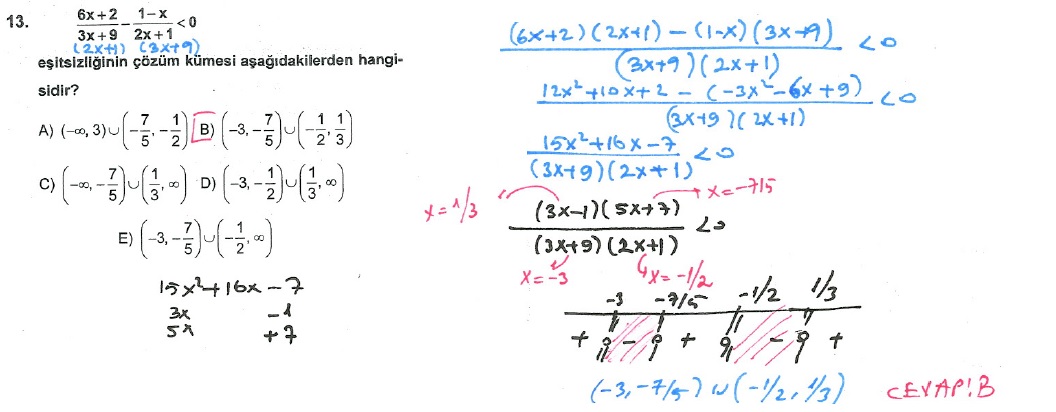 13. (6x+2)/(3x+9) - (1-x)/(2x+1) < 0
(2x+1) (3x+9)
eşitsizliğinin çözüm kümesi aşağıdakilerden hangi-
sidir?
A) (-∞, 3)∪(-7/5, -1/2) B) (-3, -7/5)∪(-1/2, 1/3)
C) (-∞, -7/5)∪(1/3, ∞) D) (-3, -1/2)∪(1/3, ∞)
E) (-3, -7/5)∪(-1/2, ∞)
15x²+16x-7
3x -1
5x +7
(6x+2)(2x+1) - (1-x)(3x+9)
(3x+9)(2x+1) <0
12x²+10x+2 - (-3x²-6x+9)
(3x+9)(2x+1) <0
15x²+16x-7
(3x+9)(2x+1) <0
x=1/3 x=-7/5
(3x-1)(5x+7)
(3x+9)(2x+1) <0
x=-3 x=-1/2
-3 -7/5 -1/2 1/3
+ - + - +
(-3, -7/5) ∪ (-1/2, 1/3) CEVAP!B